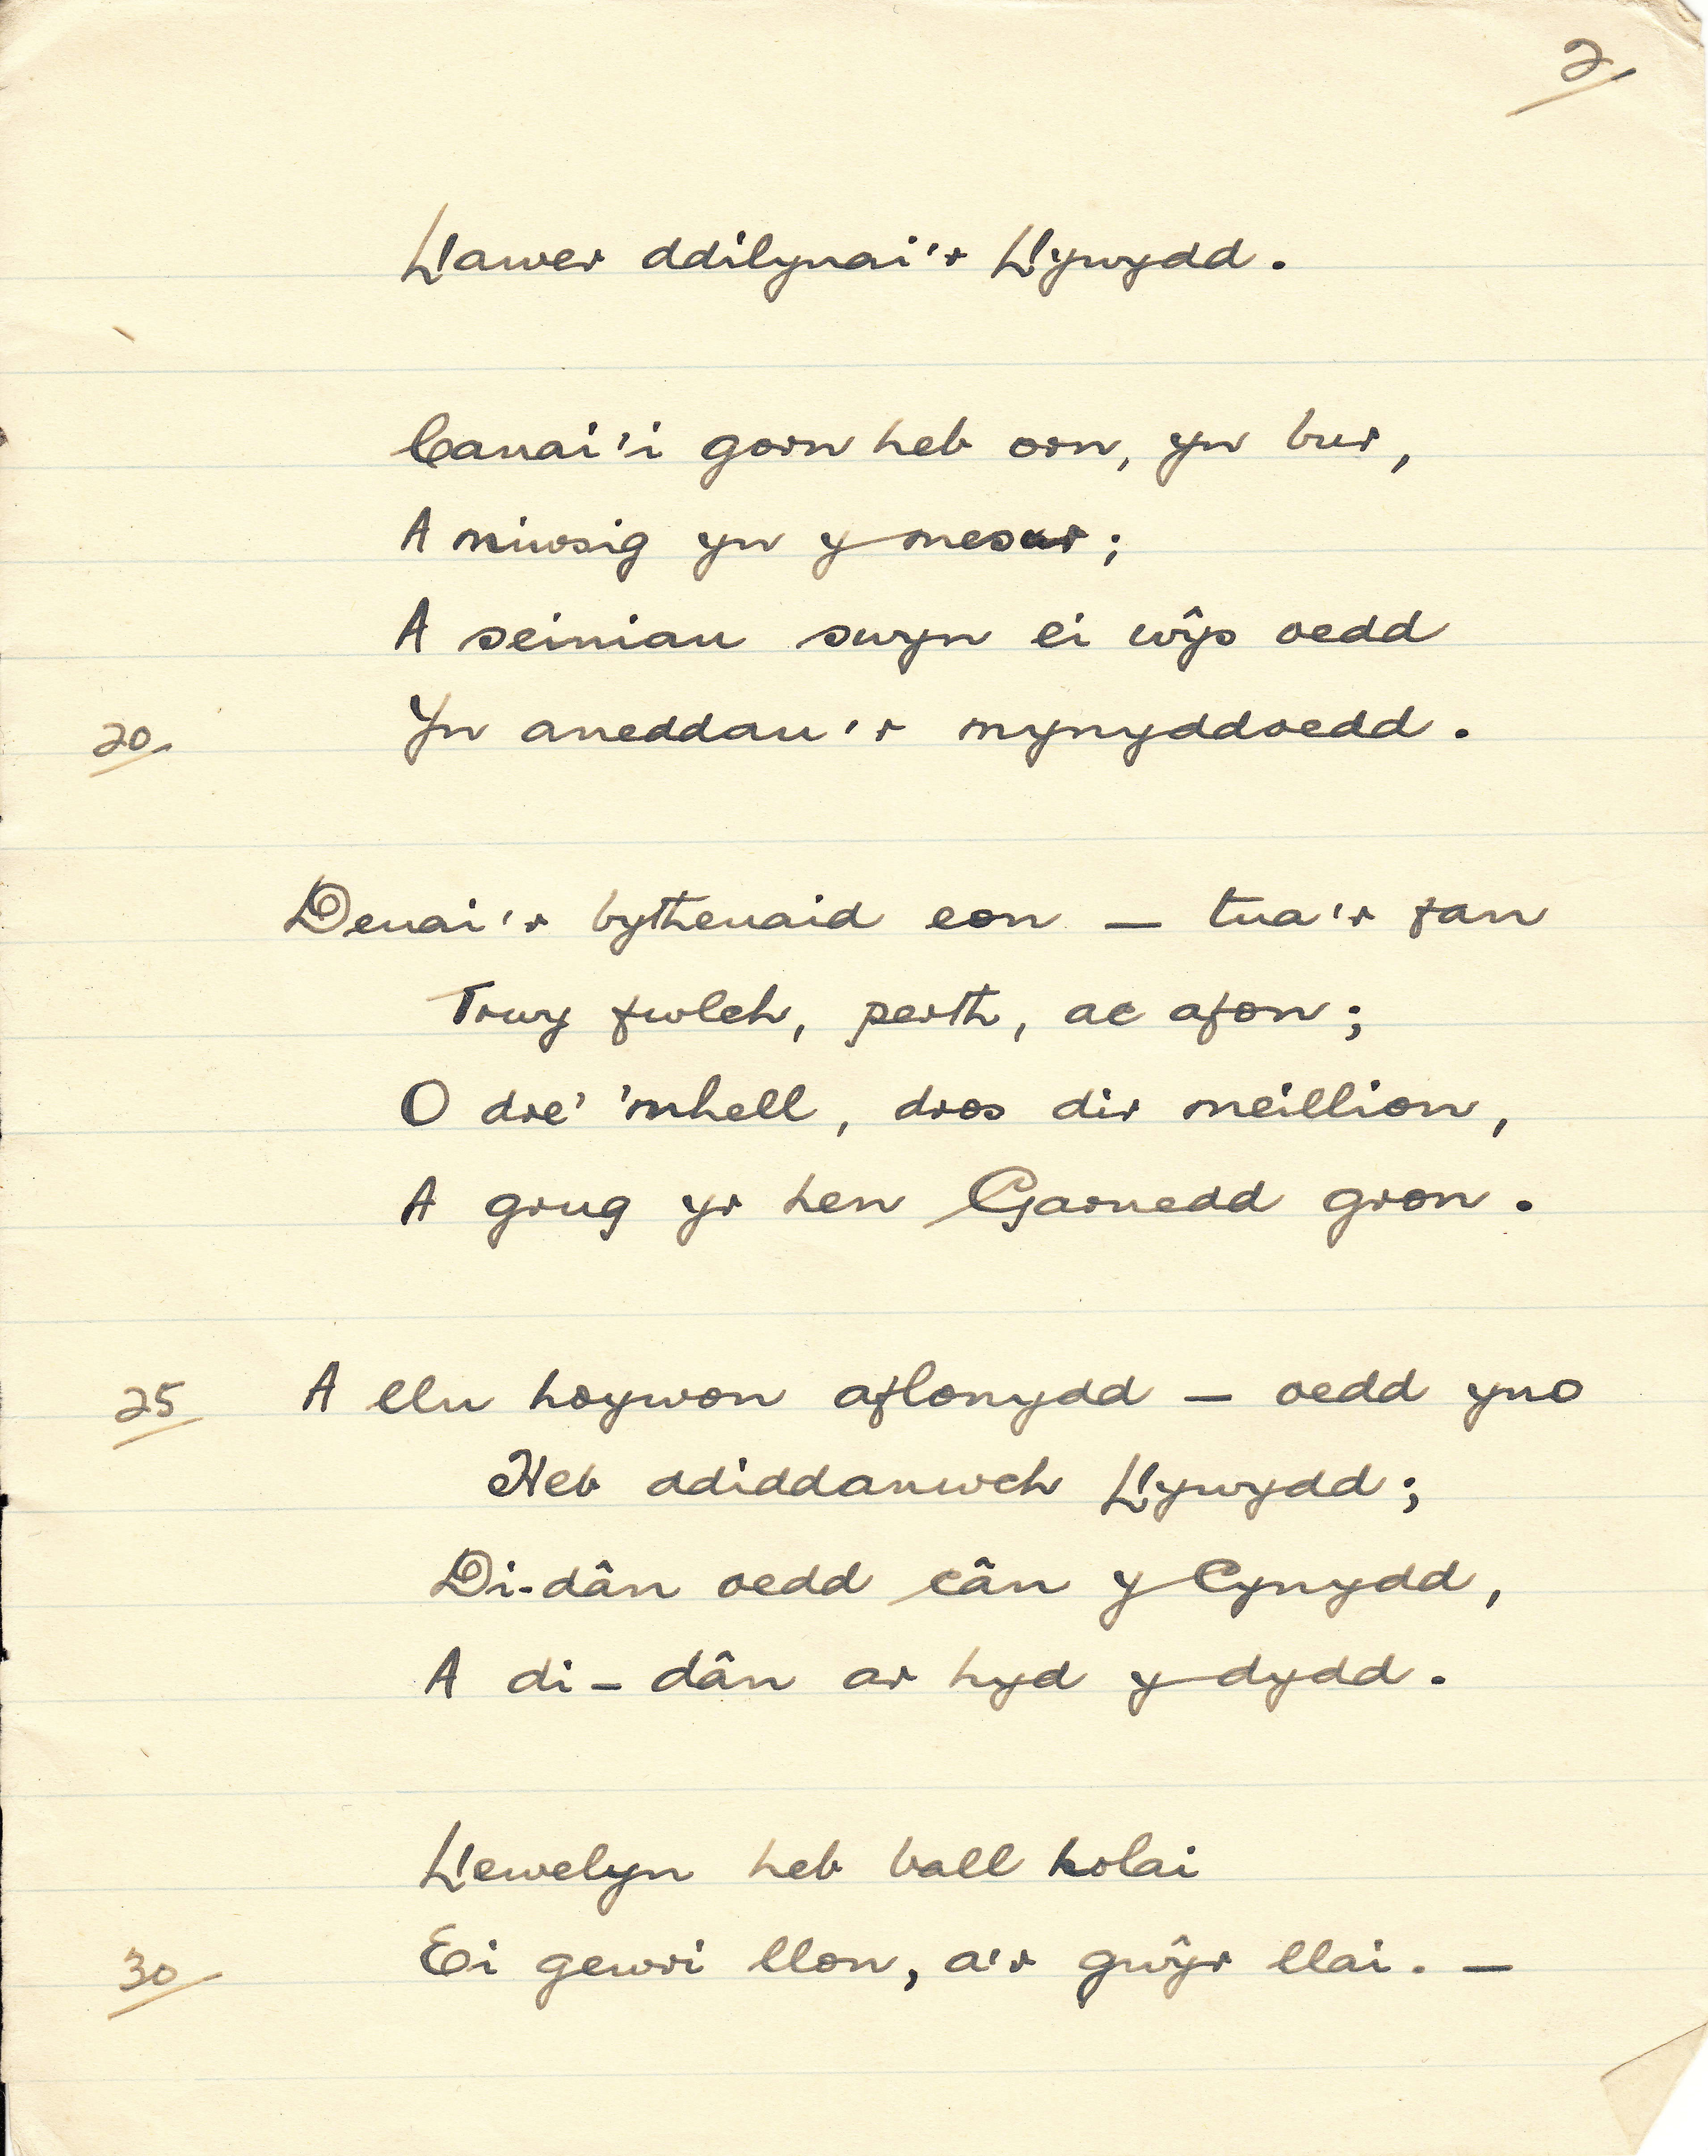 2/
Llawer ddilynai'r Llywydd.
Canai'i gorn heb orn, yn bur,
A miwsig yn y mesur;
A seiniau swyn ei wŷs oedd
20. Yn aneddau'r mynyddoedd.
Deuai'r bytheuaid eon — tua'r fan
Trwy fwlch, perth, ac afon;
O dre' 'mhell, dros dir meillion,
A grug yr hen Garnedd gron.
25 A llu hoywon aflonydd — oedd yno
Heb ddiddanwch Llywydd;
Di-dân oedd cân y Cynydd,
A di-dân ar hyd y dydd.
Llewelyn heb ball holai
30 Ei gewri llon, a'r gwŷr llai. —